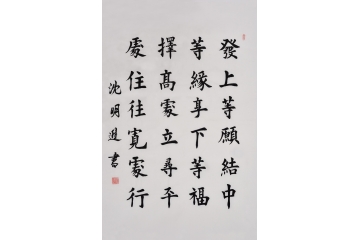 發上等願結中
等緣享下等福
擇高處立尋平
處住往寬處行
沈明進書